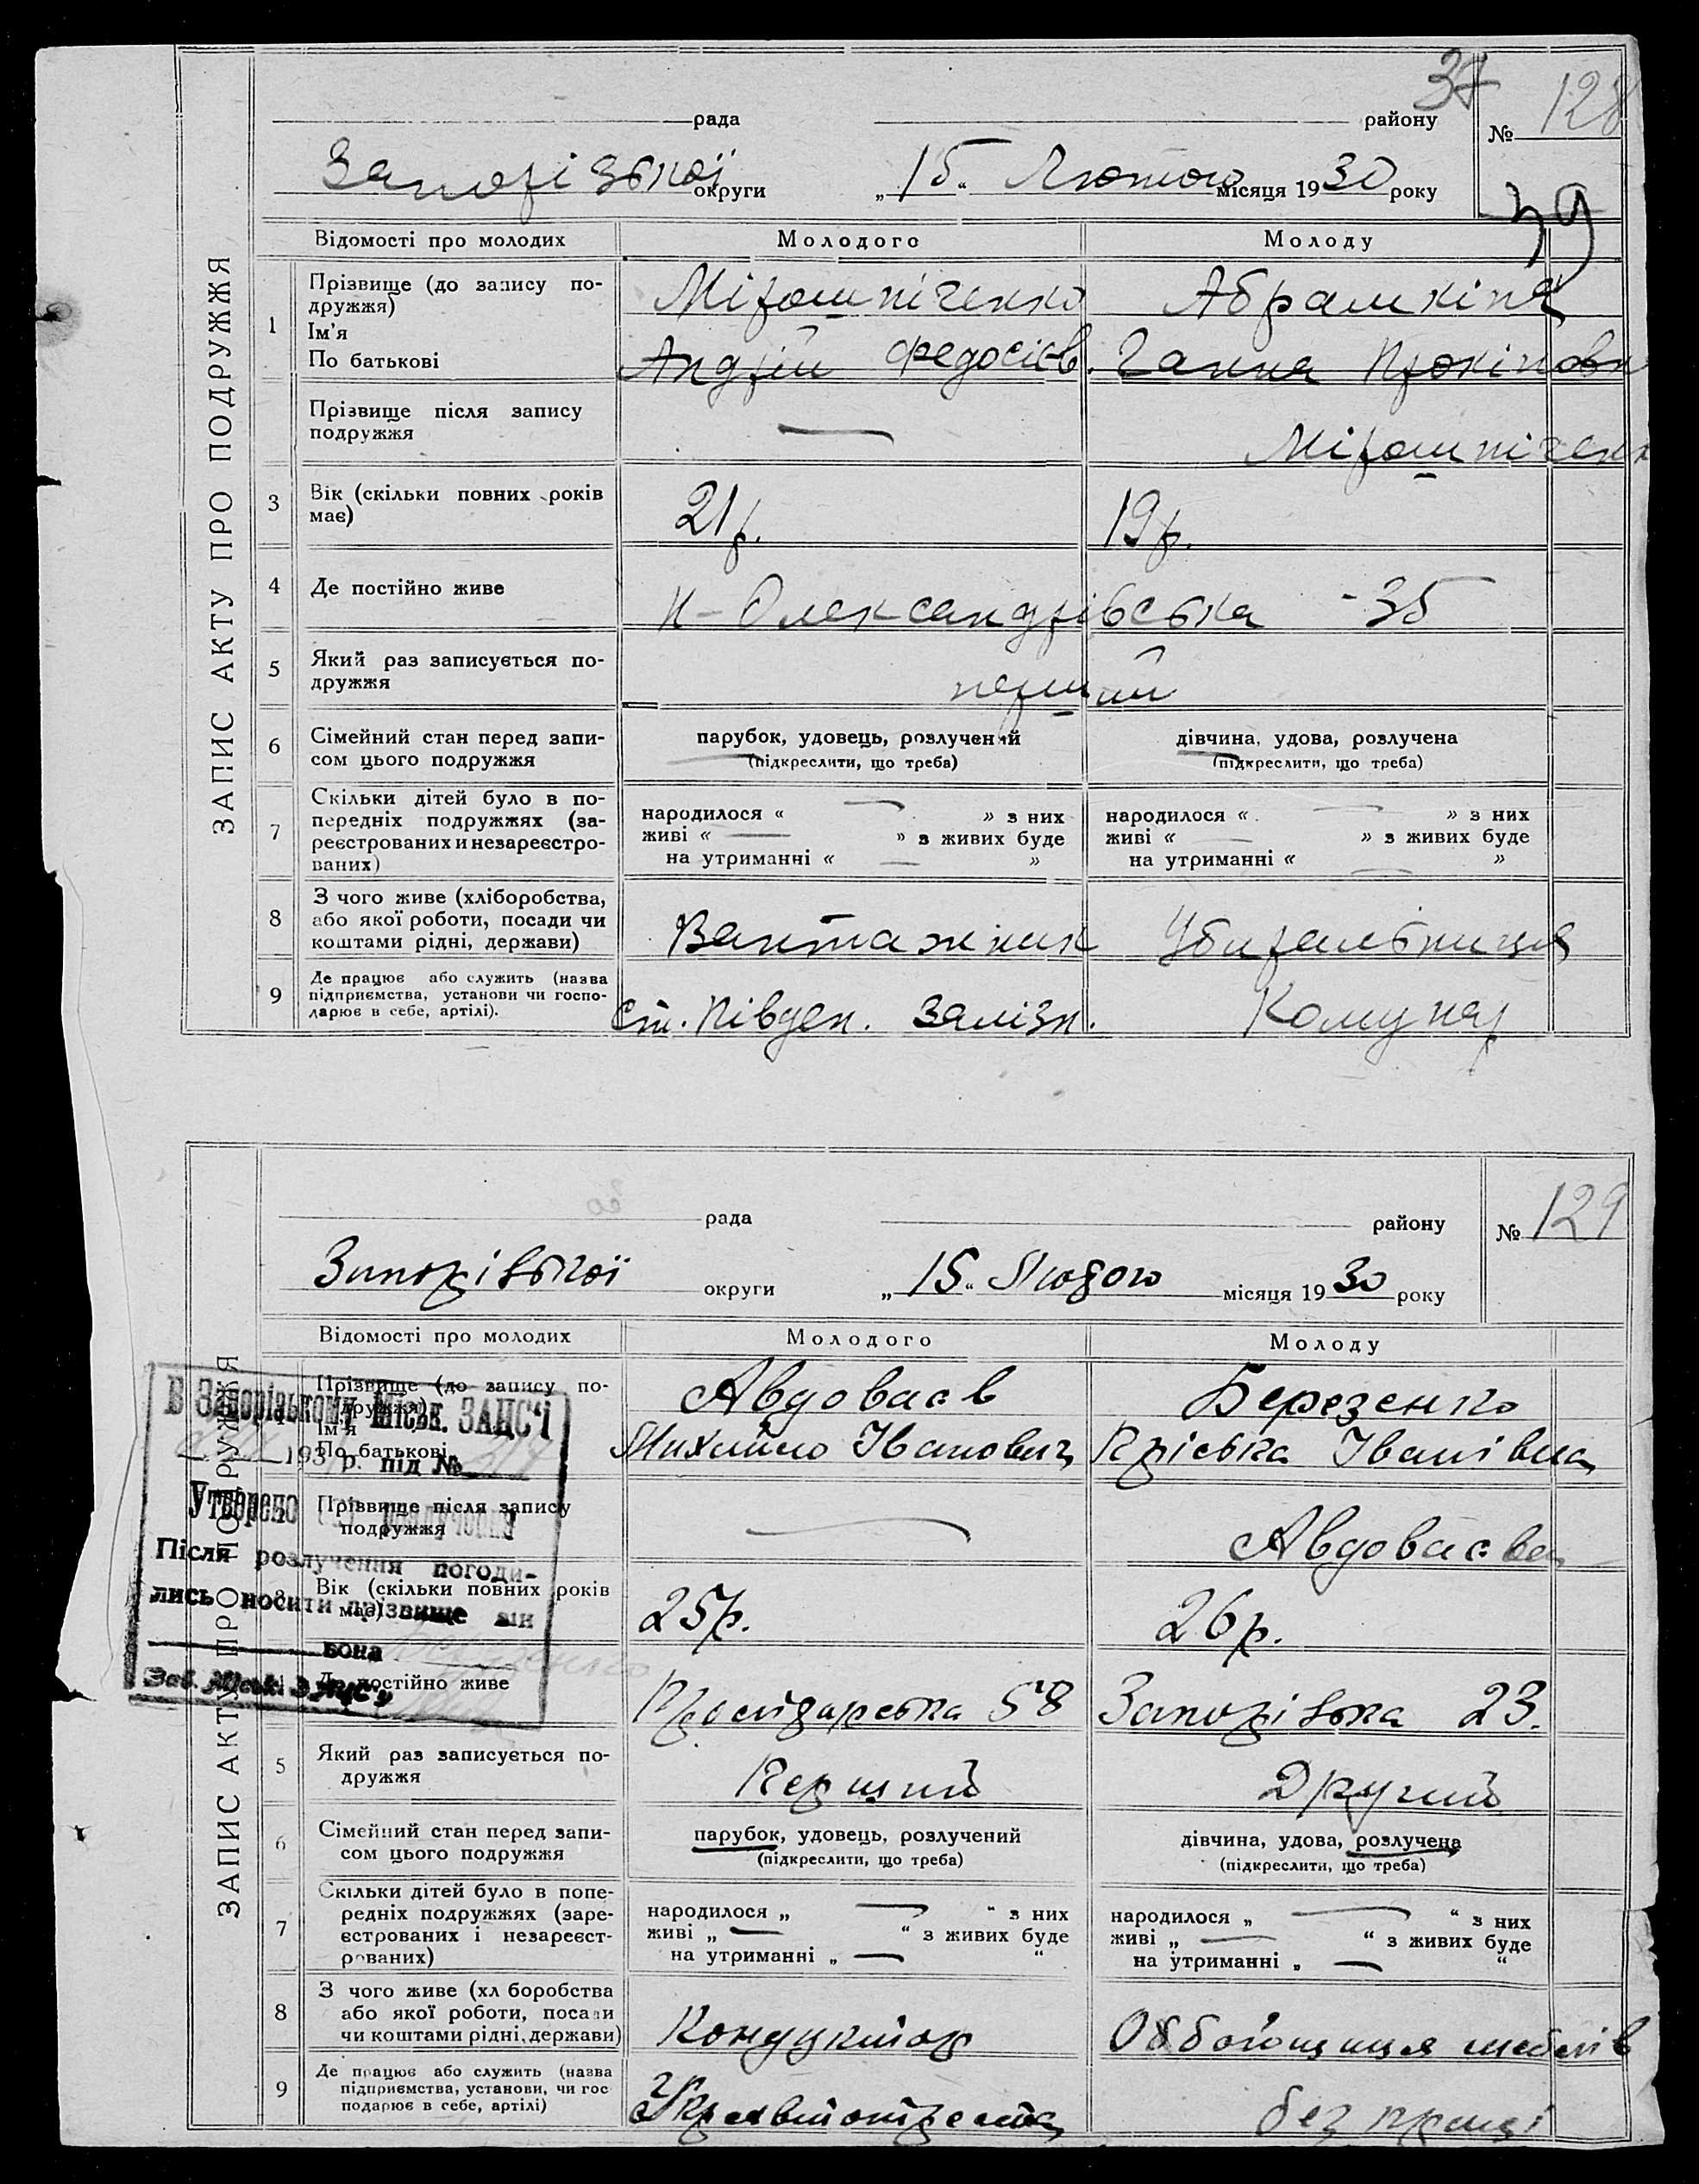 37
рада району № 128
Запорізької округи „15“ Лютого місяця 1930 року
39
ЗАПИС АКТУ ПРО ПОДРУЖЖЯ
Відомості про молодих Молодого Молоду
1 Прізвище (до запису по-
дружжя)
Ім'я
По батькові
Мірошніченко Абрамкіна
Андрій Федосієв. Ганна Прокіповн
Прізвище після запису
подружжя
— Мірошніченк
3 Вік (скільки повних років
має)
21 р. 19 р.
4 Де постійно живе
Н-Олександрівська - 35
5 Який раз записується по-
дружжя
перший
6 Сімейний стан перед запи-
сом цього подружжя
парубок, удовець, розлучений дівчина, удова, розлучена
(підкреслити, що треба) (підкреслити, що треба)
7 Скільки дітей було в по-
передніх подружжях (за-
реєстрованих и незареєстро-
ваних)
народилося « — » з них народилося « — » з них
живі « — » з живих буде живі « — » з живих буде
на утриманні « — » на утриманні « — »
8 З чого живе (хліборобства,
або якої роботи, посади чи
коштами рідні, держави)
Вантажник Убиральниця
9 Де працює або служить (назва
підприємства, установи чи госпо-
дарює в себе, артілі).
Ст. Півден. Залізн. Комунар
рада району № 129
Запорізької округи „15“ Лютого місяця 1930 року
ЗАПИС АКТУ ПРО ПОДРУЖЖЯ
Відомості про молодих Молодого Молоду
Прізвище (до запису по-
дружжя)
Ім'я
По батькові
Авдоваєв Березенко
Михайло Іванович Пріська Іванівна
Прізвище після запису
подружжя
— Авдоваєва
Вік (скільки повних років
має)
25 р. 26 р.
Де постійно живе
58 Запорізька 23.
В Запорізькому Міськ. ЗАГС'і
193 р. під №
Утворено розлучення
Після розлучення погоди-
лись носити прізвище він
вона
Зав. Міськ. ЗАГС'у
5 Який раз записується по-
дружжя
Перший Другий
6 Сімейний стан перед запи-
сом цього подружжя
парубок, удовець, розлучений дівчина, удова, розлучена
(підкреслити, що треба) (підкреслити, що треба)
7 Скільки дітей було в попе-
редніх подружжях (заре-
єстрованих і незареєст-
рованих)
народилося „ — “ з них народилося „ — “ з них
живі „ — “ з живих буде живі „ — “ з живих буде
на утриманні „ — “ на утриманні „ — “
8 З чого живе (хл боробства
або якої роботи, посади
чи коштами рідні, держави)
Кондуктор
9 Де працює або служить (назва
підприємства, установи, чи гос
подарює в себе, артілі)
без праці